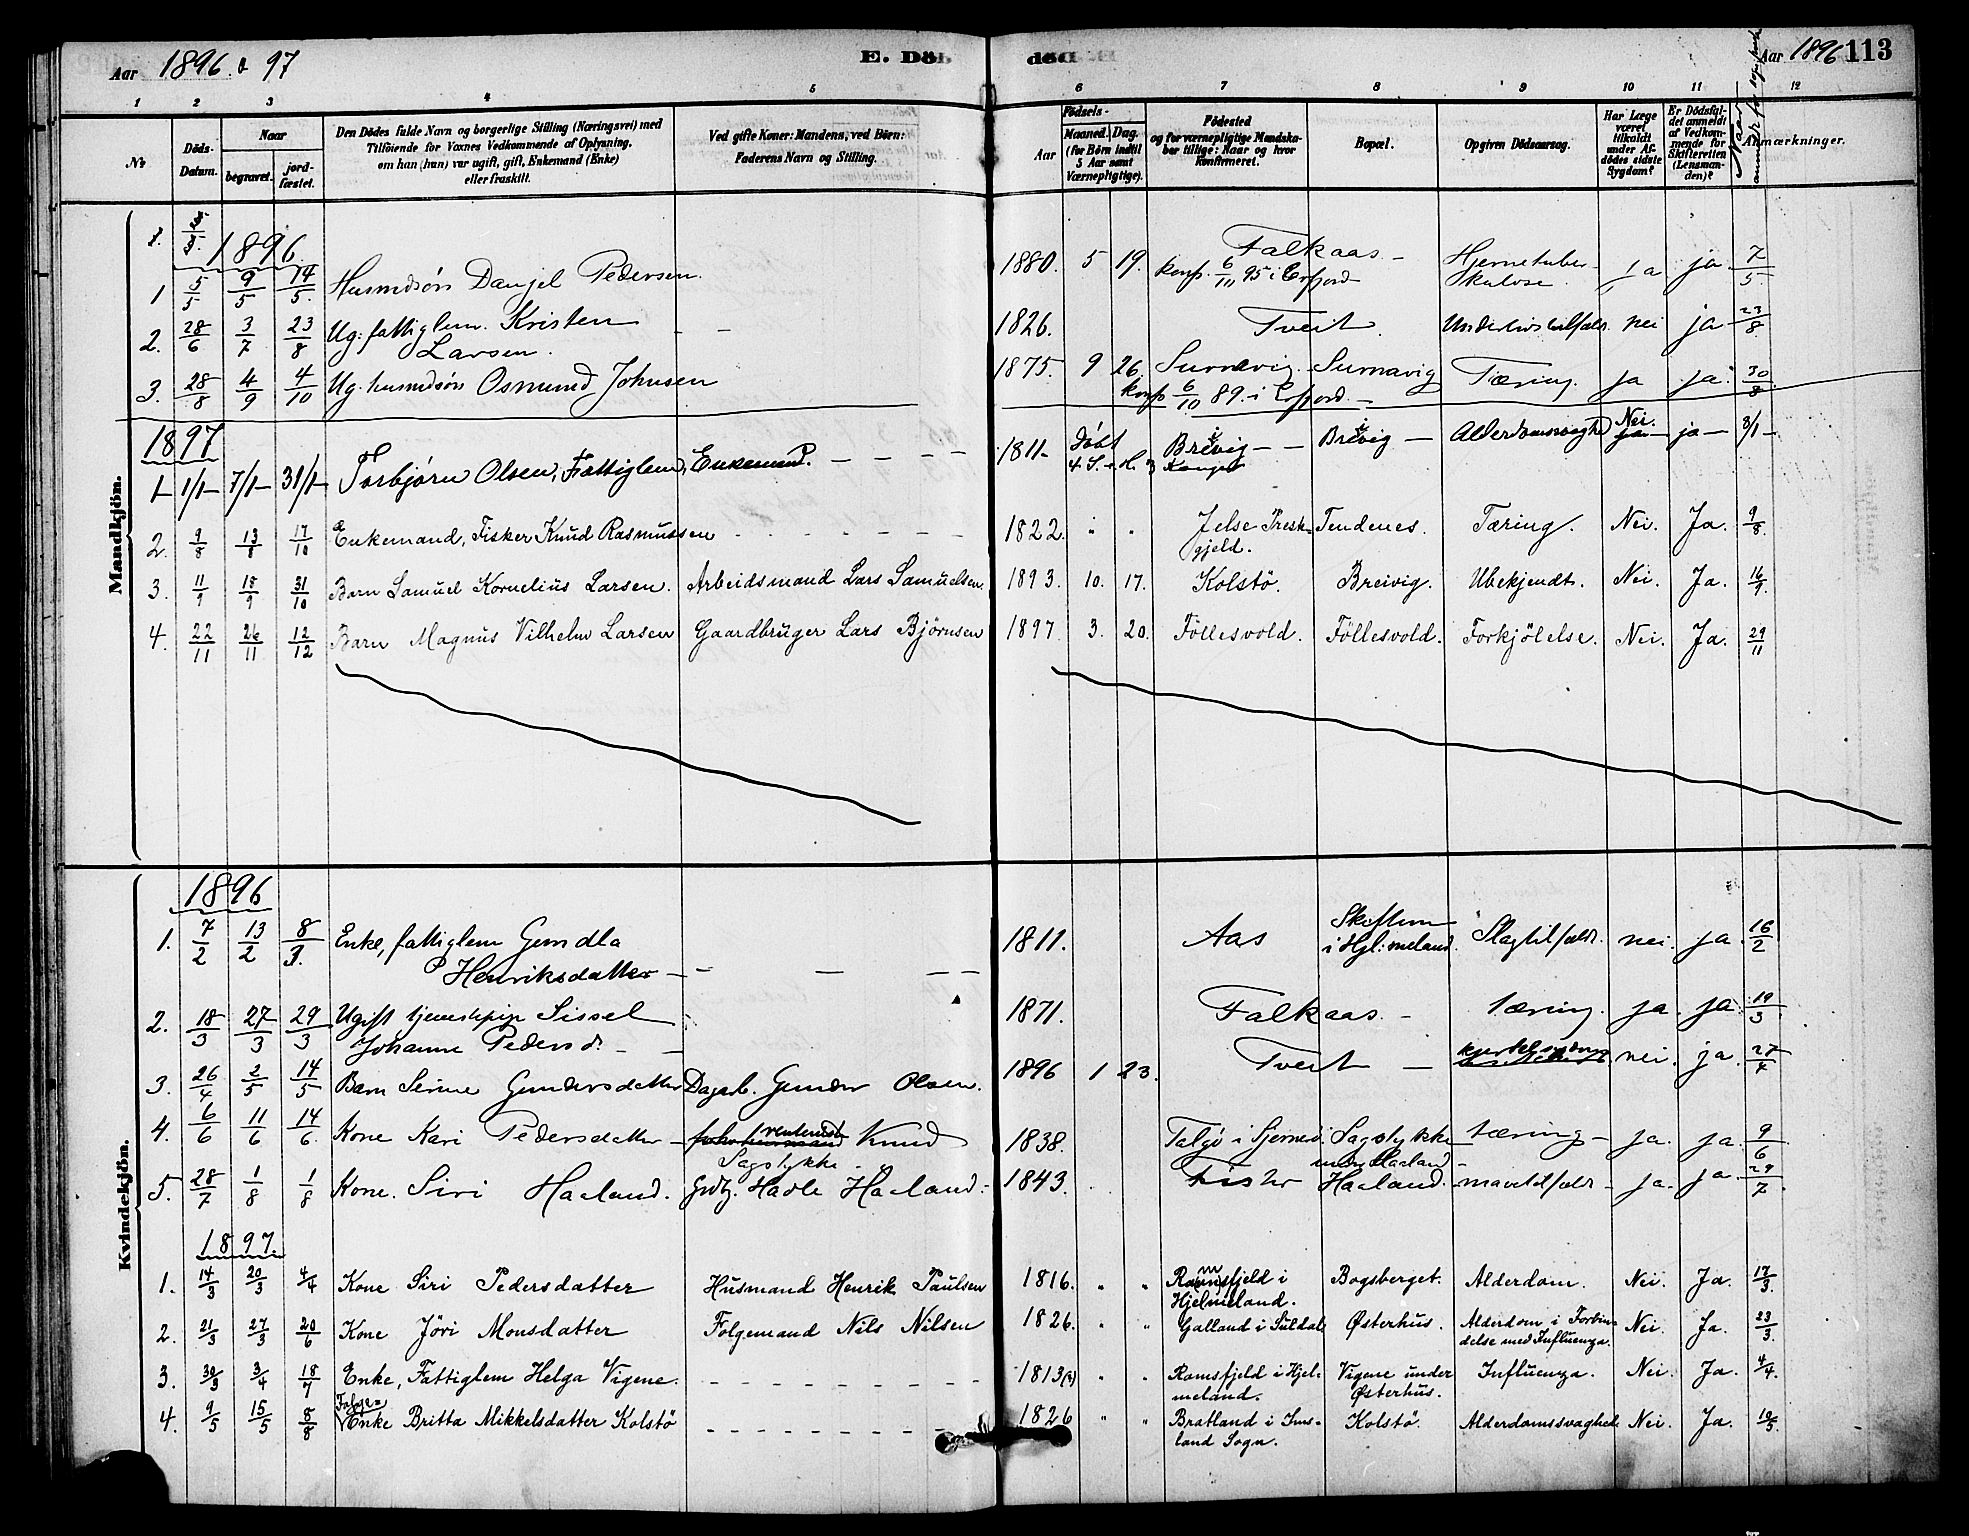 Aar 1896 & 97
E. Död
död
Aar 1896 113
1 2 3 4 5 6 7 8 9 10 11 12
No
Döds-Datum.
Naar
begravet.
jord-fæstet.
Den Dödes fulde Navn og borgerlige Stilling (Næringsvei) med
Tilföiende for Voxnes Vedkommende af Oplysning,
om han (hun) var ugift, gift, Enkemand (Enke)
eller fraskilt.
Ved gifte Koner: Mandens, ved Börn:
Faderens Navn og Stilling.
Födsels-
Aar
Maaned. Dag.
(for Börn indtil
5 Aar samt
Værnepligtige).
Födested
og for værnepligtige Mandska-
ber tillige: Naar og hvor
konfirmeret.
Bopæl.
Opgiven Dödsaarsag.
Har Læge
været
tilkaldt
under Af-
dödes sidste
Sygdom?
Er Dödsfal-
det anmeldt
af Vedkom-
mende for
Skifteretten
(Lensman-
den)?
Anmærkninger.
Mandkjön.
1896.
1 5/5 9/5 14/5. Husmdsön Danjel Pedersen. 1880. 5 19. Falkaas – konf. 6/10 95 i Erfjord Hjernetuber-kulose. ja ja 7/5
2. 28/6 3/7 23/8 Ug. fattiglem. Kristen Larsen. – – 1826. Tveit. Underlivstilfælde nei ja 23/8
3. 28/8 4/9 4/10 Ug. husmdsön Osmund Johnsen 1875. 9 26. Surnevig. konf 6/10 89. i Erfjord. – Surnavig Tæring. ja ja 30/8
1897
1 1/1 7/1 31/1 Torbjørn Olsen, Fattiglem, Enkemand. – – – – 1811. döbt 4 S. Brevig – Brevig – Alderdomssvaghed Nei. ja – 3/1 –
2. 9/8 13/8 17/10 Enkemand, Fisker Knud Rasmussen 1822. " " Jelse Prestegjeld. Tendenes. Tæring. Nei. Ja. 9/8.
3. 11/9 15/9 31/10 Barn Samuel Kornelius Larsen. Arbeidsmand Lars Samuelsen. 1893. 10. 17. Kolstö. Breivig. Ubekjendt. Nei. Ja. 16/9.
4. 22/11 26/11 12/12 Barn Magnus Vilhelm Larsen Gaardbruger Lars Björnsen 1897 3. 20. Föllesvold. Föllesvold. Forkjölelse. Nei. Ja. 29/11
Kvindekjön.
1896
1. 7/2 13/2 8/3. Enke, fattiglem Gundla Henriksdatter – – – – 1811. Aas Skiftun i Hjelmeland. Slagtilfælde. nei. ja. 16/2
2. 18/3 27/3 29/3 Ugift tjenestepige Sissel Johanne Pedersd. – – 1871. Falkaas. – tæring. ja. ja. 19/3
3. 26/4 2/5 14/5 Barn Serine Gundersdatter Dagarb. Gunder Olsen. 1896 1 23. Tveit – kjertelsydom nei. ja. 27/4
4. 6/6 11/6 14/6. Kone Kari Pedersdatter – Knud Sagstykke – 1838. Talgö i Sjernerö Sagstykke under Haaland – tæring – ja. ja. 9/6
5. 28/7 1/8 1/8 Kone. Siri Haaland. Grdbg. Hadle Haaland. 1843. Haaland. mavetilfælde – ja. ja. 29/7
1897.
1. 14/3 20/3 4/4 Kone Siri Pedersdatter Husmand Henrik Paulsen 1816. " " Ramsfjeld i Hjelmeland. Bogsberget. Alderdom. Nei. Ja. 17/3.
2. 21/3 27/3 20/6 Kone Jöri Monsdatter Folgemand Nils Nilsen 1826. " " Galland i Suldal Østerhus. Alderdom i Forbin-delse med Influenza. Nei. Ja. 23/3.
3. 30/3 3/4 18/7 Enke, Fattiglem Helga Vigene. – – – 1813(?) " " Ramsfjeld i Hjel-meland. Vigene under Østerhus. Influenza. Nei. Ja. 4/4.
4. 9/5 15/5 8/8 Folge-Enke Britta Mikkelsdatter Kolstö – – – 1826 " " Bratland i Ims-land Sogn. Kolstö. Alderdomssvaghed. Nei. Ja. 10/5.